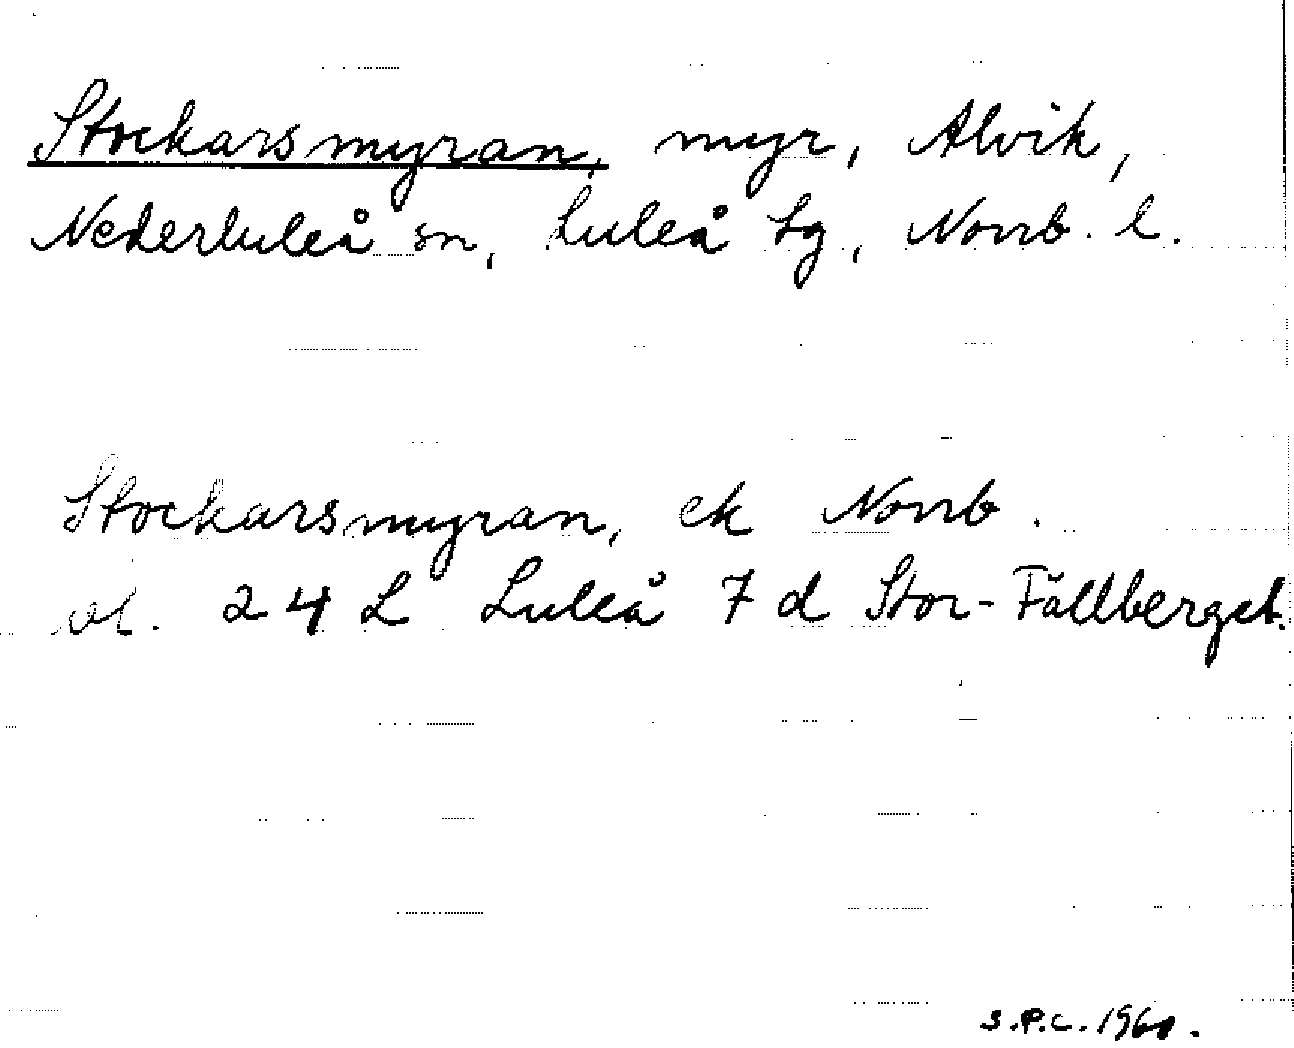 Stockarsmyran, myr, Alvik,
Nederluleå sn, Luleå tg, Norrb. l.
Stockarsmyran, ek Norrb.
bl. 24 L Luleå 7 d Stor-Fällberget.
S.P.C. 1960.